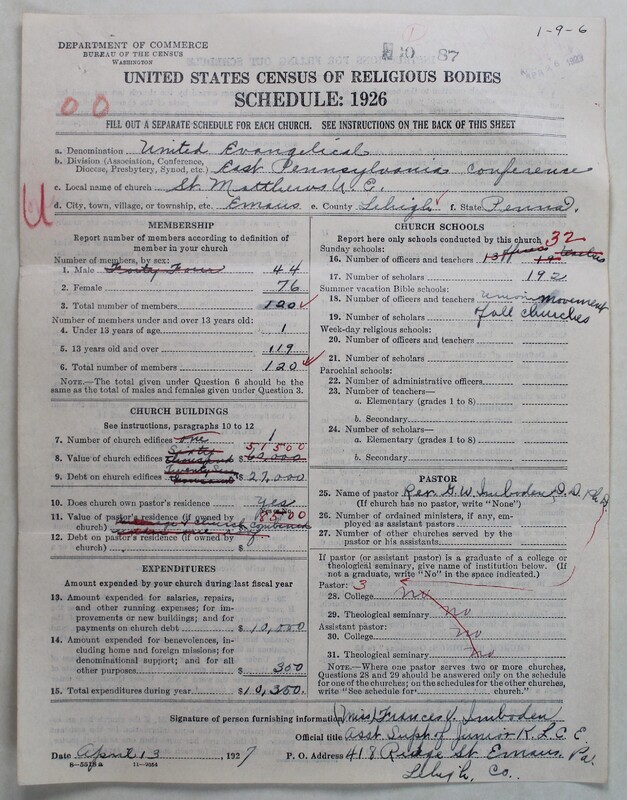 1-9-6
DEPARTMENT OF COMMERCE
BUREAU OF THE CENSUS
WASHINGTON
87
UNITED STATES CENSUS OF RELIGIOUS BODIES
SCHEDULE: 1926
00
FILL OUT A SEPARATE SCHEDULE FOR EACH CHURCH. SEE INSTRUCTIONS ON THE BACK OF THIS SHEET
a. Denomination United Evangelical
b. Division (Association, Conference, Diocese, Presbytery, Synod, etc.) East Pennsylvania Conference
c. Local name of church St. Matthews U.E.
d. City, town, village, or township, etc. Emaus e. County Lehigh f. State Penna.
U
MEMBERSHIP
Report number of members according to definition of
member in your church
Number of members, by sex:
1. Male Forty Four 44
2. Female 76
3. Total number of members 120
Number of members under and over 13 years old:
4. Under 13 years of age 1
5. 13 years old and over 119
6. Total number of members 120
NOTE.—The total given under Question 6 should be the
same as the total of males and females given under Question 3.
CHURCH BUILDINGS
See instructions, paragraphs 10 to 12
7. Number of church edifices one 1
51500
8. Value of church edifices Sixty thousand $
9. Debt on church edifices Twenty Seven thousand $27,000
10. Does church own pastor's residence? Yes
11. Value of pastor's residence (if owned by church) $8500
12. Debt on pastor's residence (if owned by
church) $
EXPENDITURES
Amount expended by your church during last fiscal year
13. Amount expended for salaries, repairs,
and other running expenses; for im-
provements or new buildings; and for
payments on church debt $10,000
14. Amount expended for benevolences,
including home and foreign missions; for
denominational support; and for all
other purposes $ 300
15. Total expenditures during year $10,300.
CHURCH SCHOOLS
Report here only schools conducted by this church
Sunday schools: 32
16. Number of officers and teachers
17. Number of scholars 192
Summer vacation Bible schools:
18. Number of officers and teachers union movement
19. Number of scholars of all churches
Week-day religious schools:
20. Number of officers and teachers
21. Number of scholars
Parochial schools:
22. Number of administrative officers
23. Number of teachers—
a. Elementary (grades 1 to 8)
b. Secondary
24. Number of scholars—
a. Elementary (grades 1 to 8)
b. Secondary
PASTOR
25. Name of pastor Rev. G. W. Imboden D.D. Ph.D.
(If church has no pastor, write "None")
26. Number of ordained ministers, if any, em-
ployed as assistant pastors
27. Number of other churches served by the
pastor or his assistants
If pastor (or assistant pastor) is a graduate of a college or
theological seminary, give name of institution below. (If
not a graduate, write "No" in the space indicated.)
Pastor: 3
28. College No
29. Theological seminary No
Assistant pastor:
30. College No
31. Theological seminary No
NOTE.—Where one pastor serves two or more churches,
Questions 28 and 29 should be answered only on the schedule
for one of the churches; on the schedules for the other churches,
write "See schedule for church."
Signature of person furnishing information (Miss) Frances V. Imboden
Official title Asst Supt of Junior K.L.C.E.
Date April 13, 1927 P. O. Address 418 Ridge St. Emaus, Pa.
8-5578 a 11-9084
Lehigh Co.